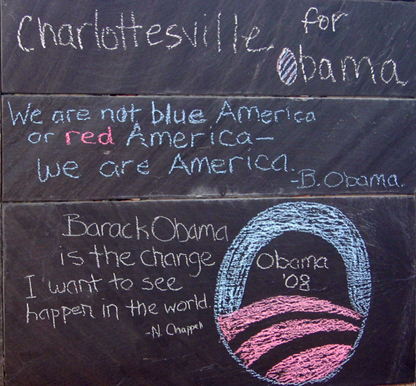 Charlottesville for
Obama
We are not blue America
or red America-
we are America.
-B. Obama.
Barack Obama
is the change
I want to see
happen in the world.
-N. Chappell
Obama
'08